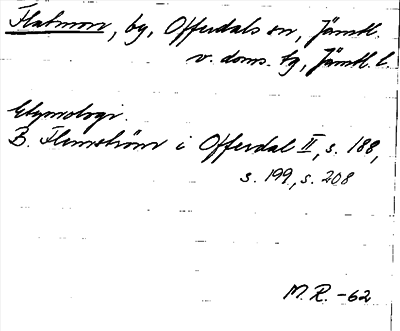 Flatmon, by, Offerdals sn, Jämtl.
v. doms. tg, Jämtl. l.
Etymologi.
B. Flemström i Offerdal II, s. 188,
s. 199, s. 208
M.R. -62